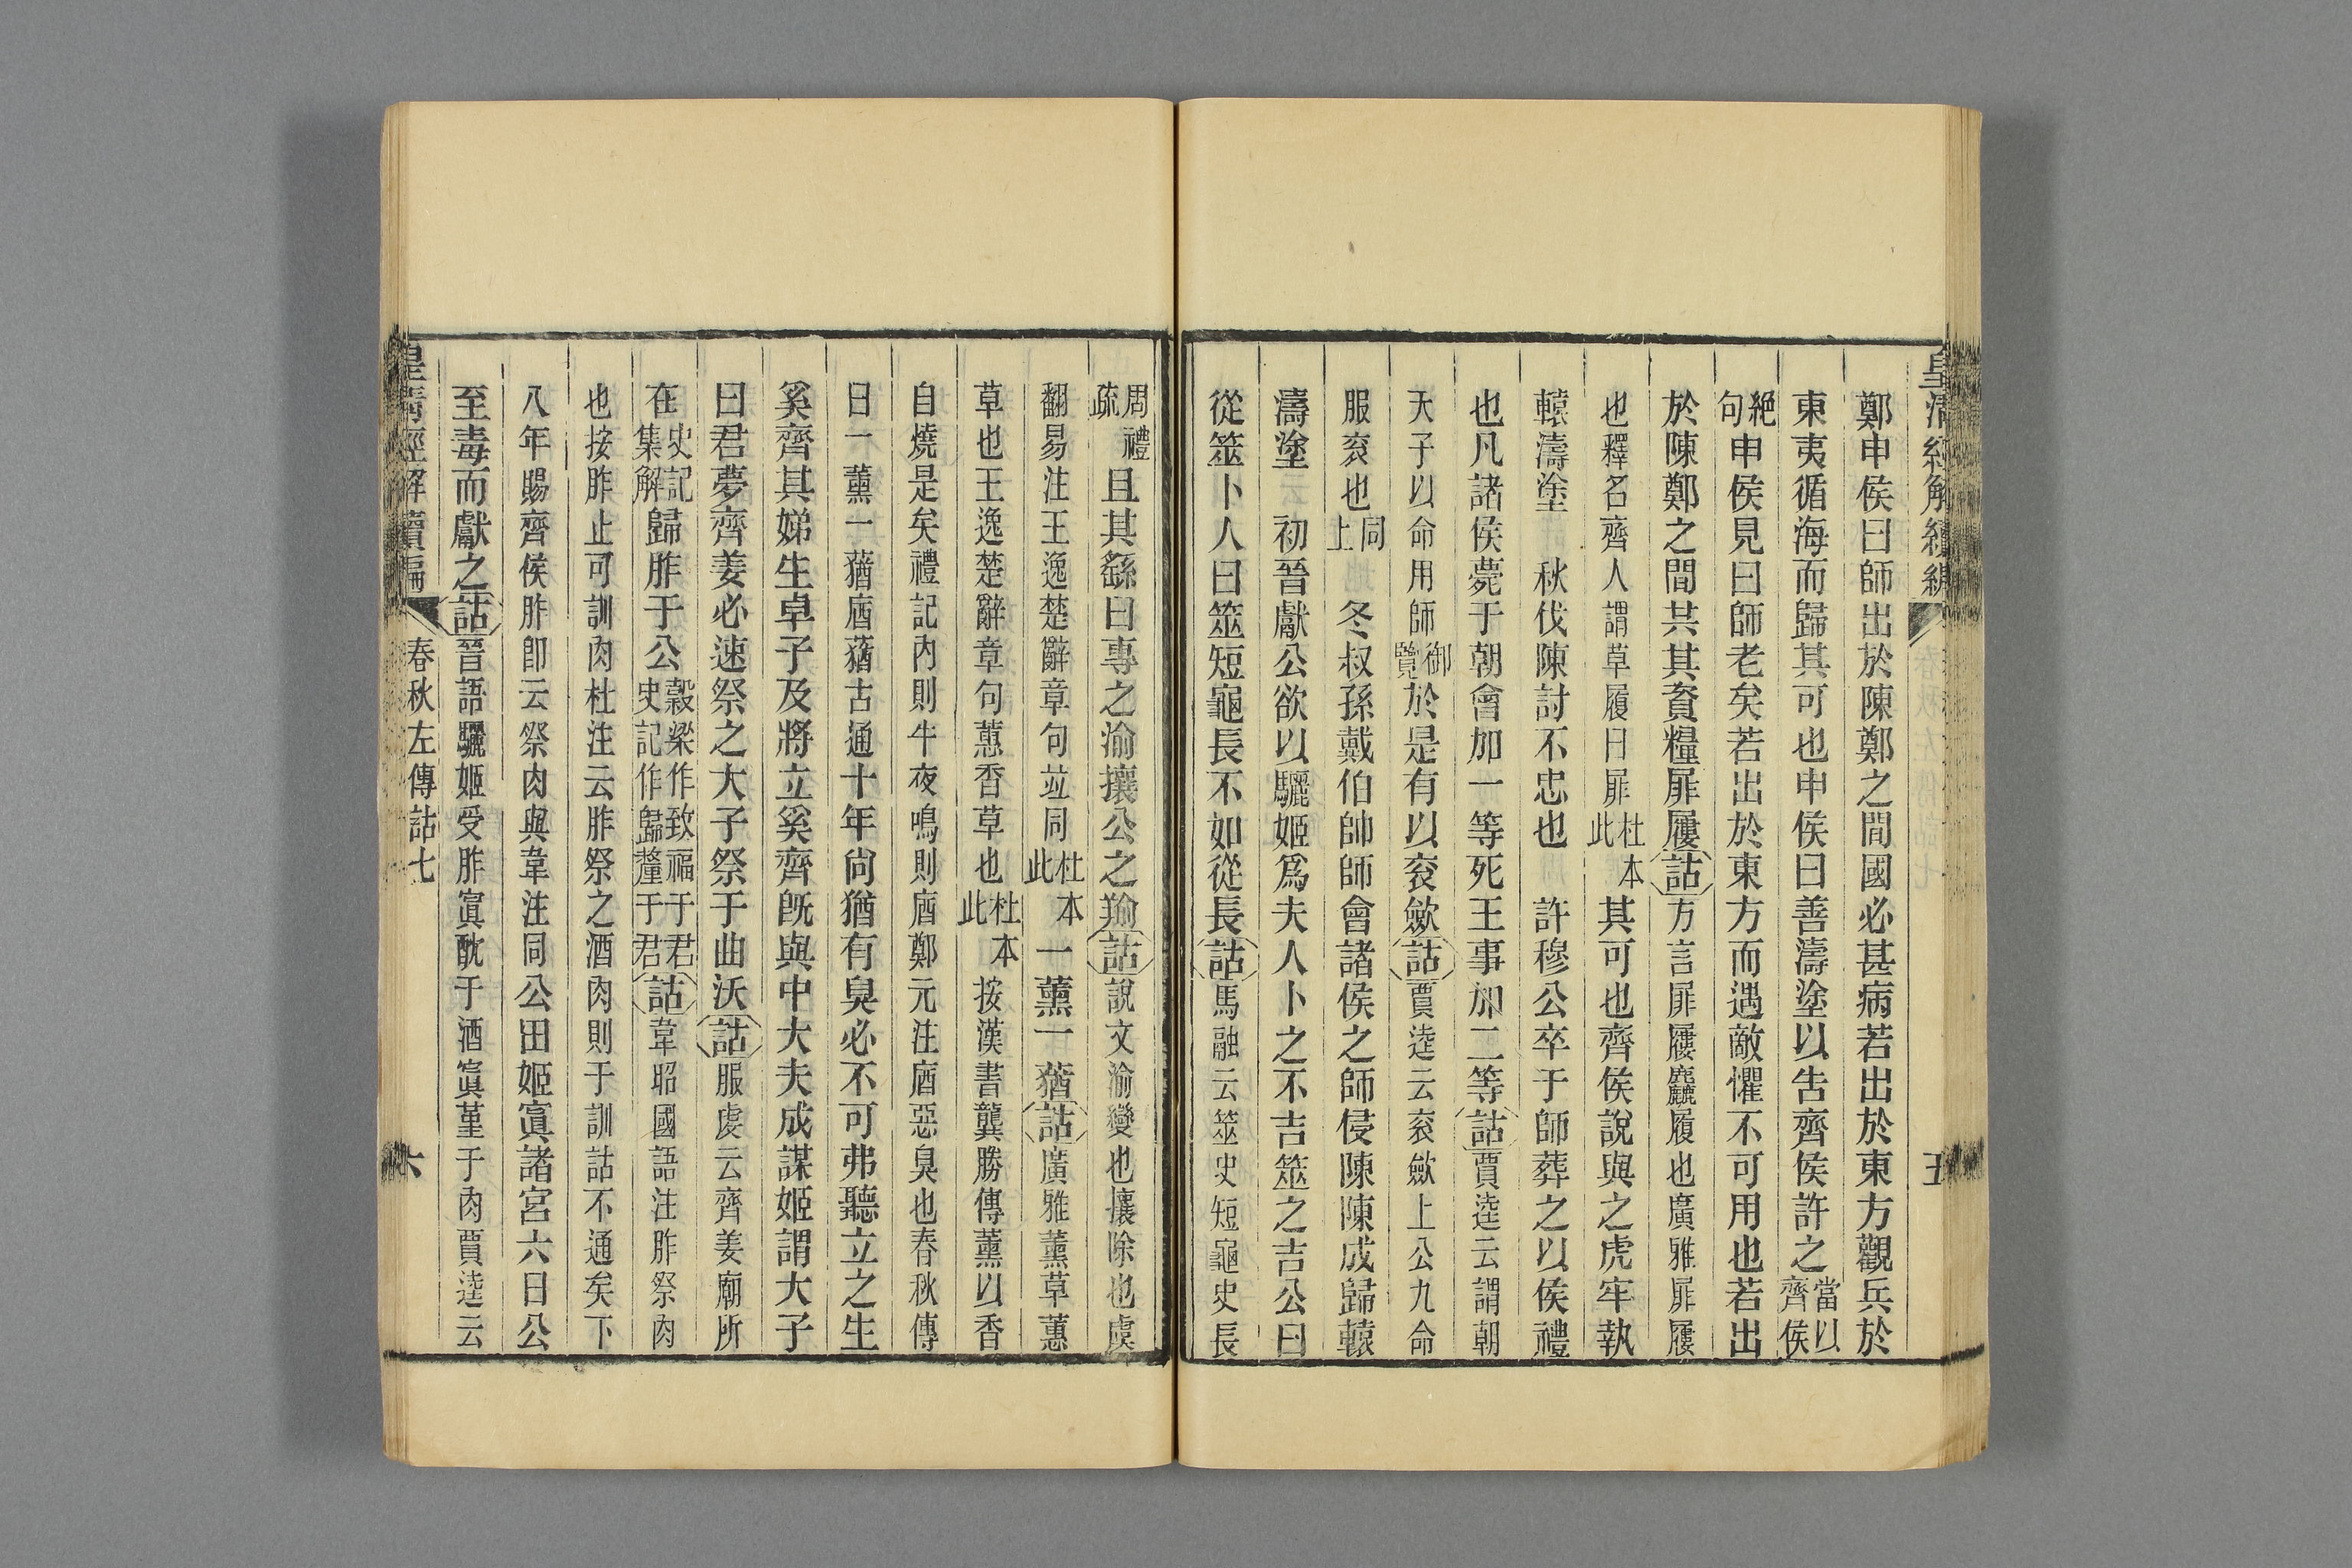 皇清經解續編
五
鄭申侯曰師出於陳鄭之間國必甚病若出於東方觀兵於
東夷循海而歸其可也申侯曰善濤塗以告齊侯許之當以齊侯
絶句申侯見曰師老矣若出於東方而遇敵懼不可用也若出
於陳鄭之間共其資糧屝屨詁方言屝屨麤履也廣雅屝屨
也釋名齊人謂草履曰屝杜本此其可也齊侯說與之虎牢執
轅濤塗 秋伐陳討不忠也 許穆公卒于師葬之以侯禮
也凡諸侯薨于朝會加一等死王事加二等詁賈逵云謂朝
天子以命用師御覽於是有以衮斂詁賈逵云衮斂上公九命
服衮也同上 冬叔孫戴伯帥師會諸侯之師侵陳陳成歸轅
濤塗 初晉獻公欲以驪姬爲夫人卜之不吉筮之吉公曰
從筮卜人曰筮短龜長不如從長詁馬融云筮史短龜史長
周禮疏且其繇曰專之渝攘公之羭詁說文渝變也攘除也虞
翻易注王逸楚辭章句竝同杜本此一薰一蕕詁廣雅薰草蕙
草也王逸楚辭章句蕙香草也杜本此按漢書龔勝傳薰以香
自燒是矣禮記內則牛夜鳴則庮鄭元注庮惡臭也春秋傳
曰一薰一蕕庮蕕古通十年尙猶有臭必不可弗聽立之生
奚齊其娣生卓子及將立奚齊旣與中大夫成謀姬謂大子
曰君夢齊姜必速祭之大子祭于曲沃詁服虔云齊姜廟所
在史記集解歸胙于公穀梁作致福于君史記作歸釐于君詁韋昭國語注胙祭肉
也按胙止可訓肉杜注云胙祭之酒肉則于訓詁不通矣下
八年賜齊侯胙卽云祭肉與韋注同公田姬寘諸宮六日公
至毒而獻之詁晉語驪姬受胙寘酖于酒寘堇于肉賈逵云
皇清經解續編 春秋左傳詁七
六